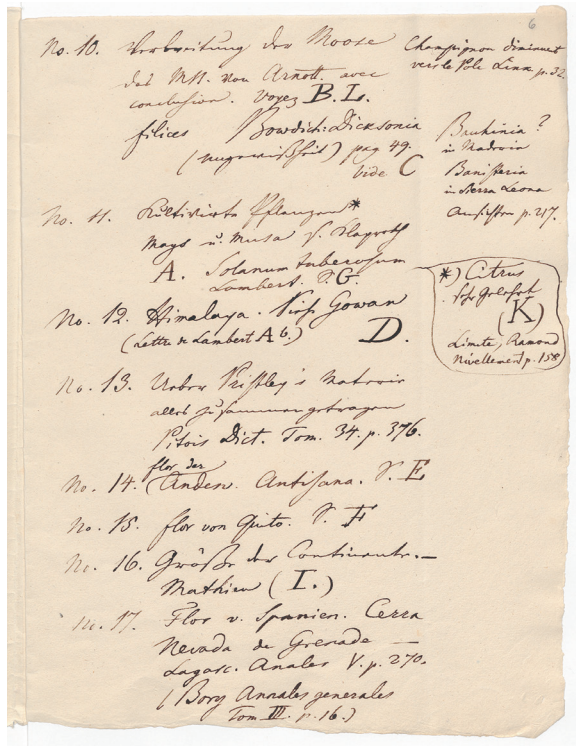 6
No. 10. Verbreitung der Moose
das MS. von Arnott. avec
conclusion. voyez B. L.
filices Bowdich: Dicksonia
pag 49.
vide C
Champignon diminuent
vers le Pole Link p. 32
Bauhinia ?
in Madeira
Banisteria
in Sierra Leona
Ansichten p. 217.
No. 11. Kultivirte Pflanzen*
Mays u. Musa S. Klaproth
A. Solanum tuberosum
Lambert. S. G.
*) Citrus
sehr
(K)
Limite, Ramond
Nivellement p. 158
No. 12. Himalaya. Gowan
(Lettre de Lambert A b.) D.
No. 13. Ueber Madeir
alles zusammengetragen
Pitois Dict. Tom. 34. p. 376.
flor der
No. 14. Anden. Antisana. S. E
No. 15. flor von Quito. S. F
No. 16. Größe der Continente.—
Mathieu (I.)
No. 17. Flor v. Spanien. Cerra
Nevada de Grenade —
Lagasc. Anales V. p. 270.
(Bory Annales generales
Tom III. p. 16.)